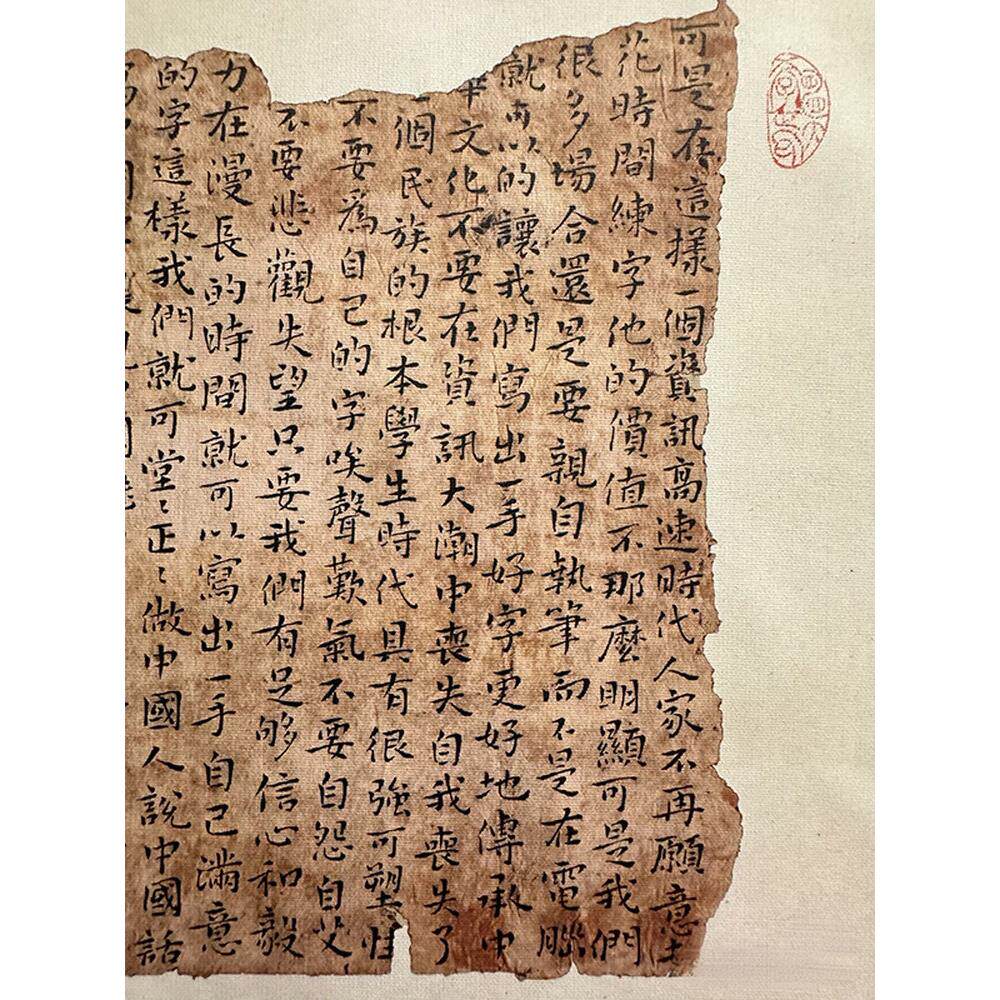 可是在這樣一個資訊高速時代人家不再願意
花時間練字他的價值不那麼明顯可是我們
很多場合還是要親自執筆而不是在電腦
就可以的讓我們寫出一手好字更好地傳承中
華文化不要在資訊大潮中喪失自我喪失了
一個民族的根本學生時代具有很強可塑性
不要爲自己的字唉聲歎氣不要自怨自艾
不要悲觀失望只要我們有足够信心和毅
力在漫長的時間就可以寫出一手自己滿意
的字這樣我們就可堂〻正〻做中國人說中國話